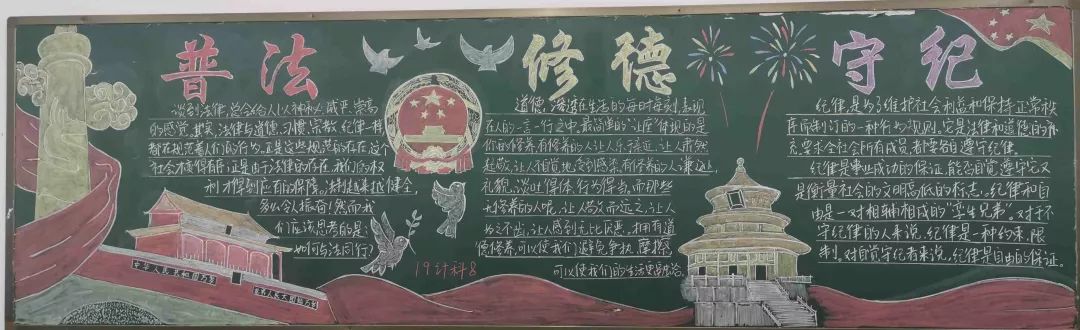 普法
谈到法律,总会给人以神秘、威严、崇高
的感觉,其实,法律与道德、习惯、宗教、纪律一样
都在规范着人们的行为。正是这些规范的存在,这个
社会才变得有序,正是由于法律的存在,我们的权
利才得到应有的保障,法制越来越健全,
多么令人振奋!然而我
们应该思考的是:
如何与法同行?
中华人民共和国万岁
世界人民大团结万岁
19计科8
修德
道德,浸渍在生活的每时每刻,表现
在人的一言一行之中,最简单的“让座”体现的是
你的修养,有修养的人让人乐接近,让人肃然
起敬,让人不自觉地受到感染,有修养的人谦逊
礼貌,谈吐得体,行为得当,而那些
无修养的人呢,让人敬而远之,让人
为之不齿,让人感到无比厌恶,拥有道
德修养,可以使我们避免争执、摩擦,
可以使我们的生活更
守纪
纪律,是为了维护社会利益和保持正常秩
序而制订的一种行为规则。它是法律和道德的补
充,要求全社会所有成员都要自遵守纪律。
纪律是事业成功的保证,能否自觉遵守它又
是衡量社会的文明高低的标志。纪律和自
由是一对相辅相成的“孪生兄弟”。对于不
守纪律的人来说,纪律是一种约束、限
制。对自觉守纪者来说,纪律是自由的保证。